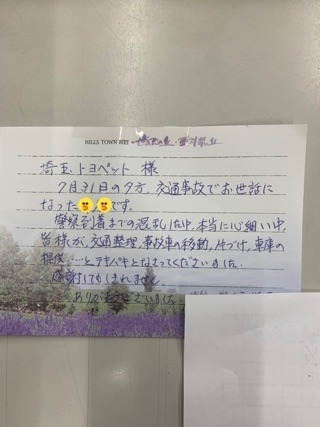 HILLS TOWN
埼玉トヨペット 様
7月31日の夕方、交通事故でお世話に
なった です。
警察到着までの混乱した中、本当に心細い中、
皆様が、交通整理、事故車の移動、片づけ、車庫の
提供…とテキパキとなさってくださいました。
感謝してもしきれません。
ありがとうございました